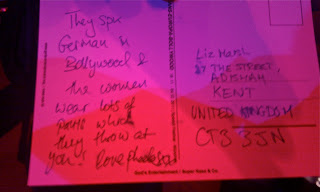 They spe
German in
Bollywood &
the women
wear lots of
which
they throw at
you! love
Liz Marsh
THE STREET,
ADISHAM
KENT
UNITED KINGDOM
CT3 3JN
God's Entertainment / Super Nase & Co.